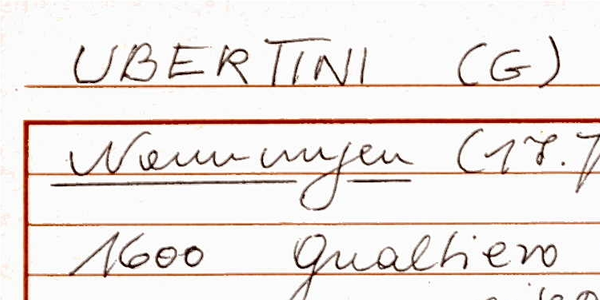 UBERTINI (G)
Nennungen (17.
1600 Gualtiero